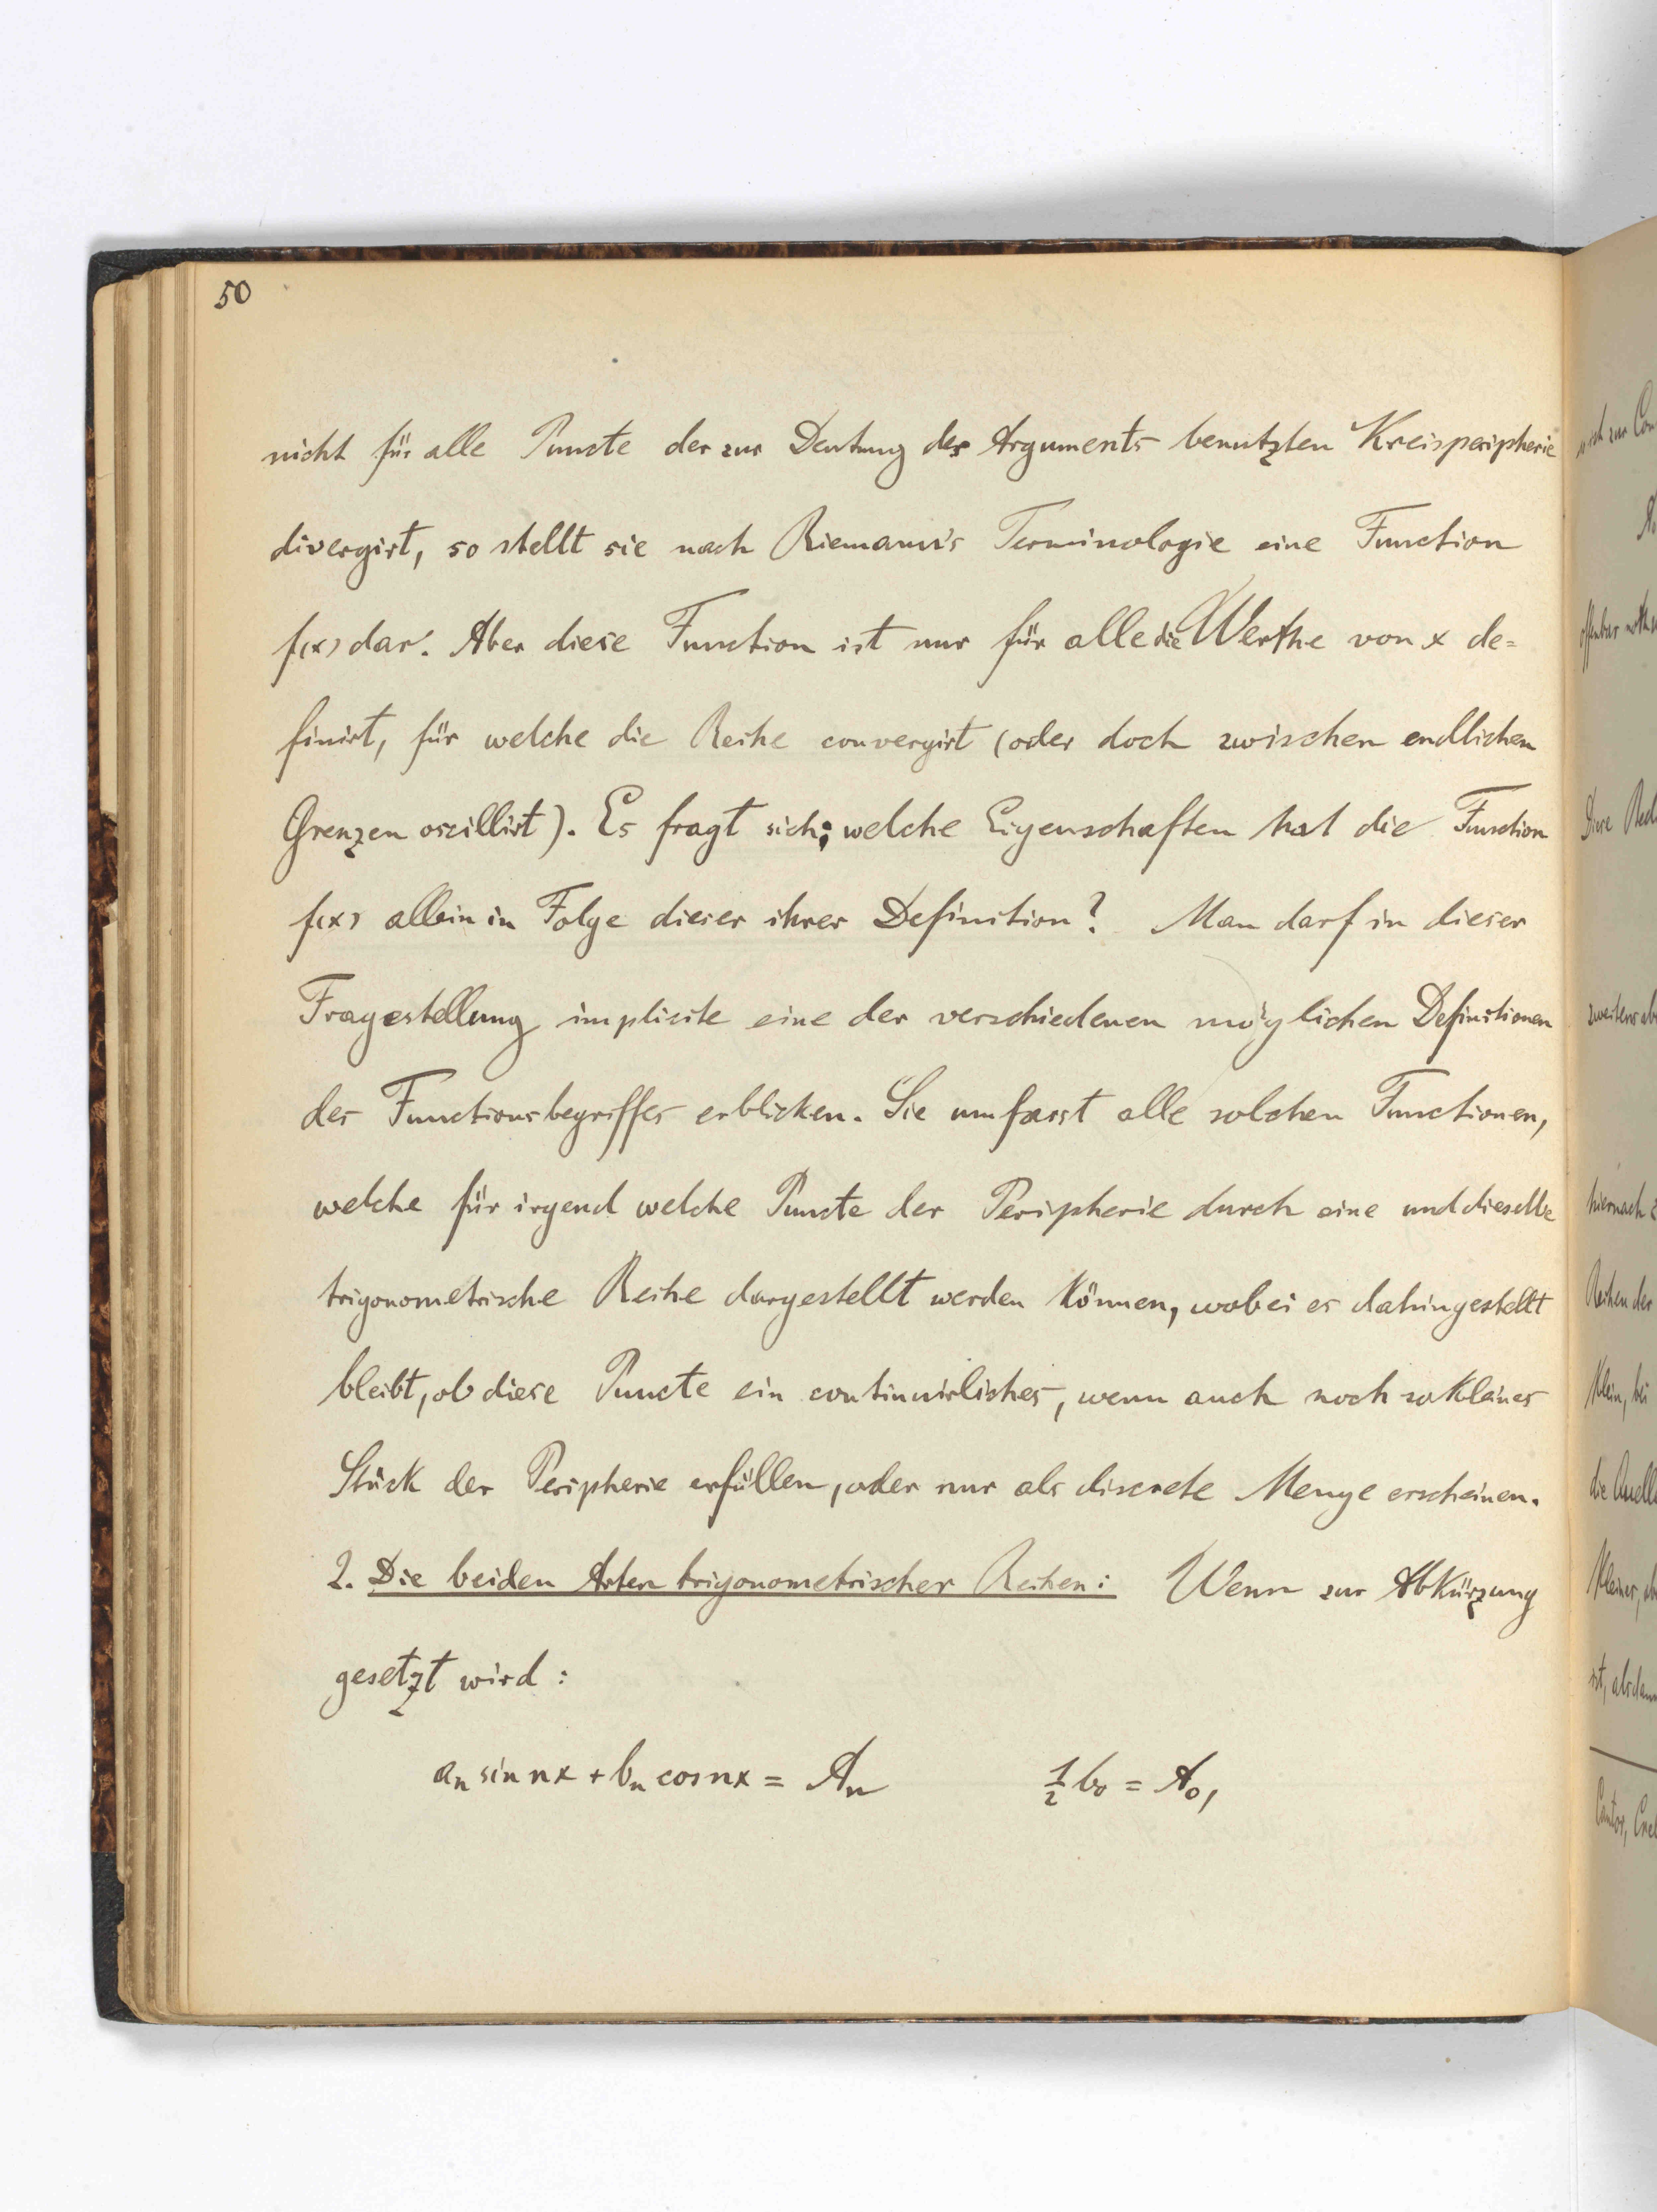 50
nicht für alle Puncte der zur Deutung des Arguments benutzten Kreisperipherie
divergirt, so stellt sie nach Riemann's Terminologie eine Function
f(x) dar. Aber diese Function ist nur für alle die Werthe von x de=
finirt, für welche die Reihe convergirt (oder doch zwischen endlichen
Grenzen oscillirt). Es fragt sich; welche Eigenschaften hat die Function
f(x) allein in Folge dieser ihrer Definition? Man darf in dieser
Fragestellung implicite eine der verschiedenen möglichen Definitionen
des Functionsbegriffes erblicken. Sie umfasst alle solchen Functionen,
welche für irgend welche Puncte der Peripherie durch eine und dieselbe
trigonometrische Reihe dargestellt werden können, wobei es dahingestellt
bleibt, ob diese Puncte ein continuirliches, wenn auch noch so kleines
Stück der Peripherie erfüllen, oder nur als discrete Menge erscheinen.
2. Die beiden Arten trigonometrischer Reihen: Wenn zur Abkürzung
gesetzt wird:
aₙ sin nx + bₙ cos nx = Aₙ ½ b₀ = A₀,
offenbar
Diese
zweitens
hiernach
Reihen der
Klein, bei
die
kleiner,
ist, alsdann
Cantor,